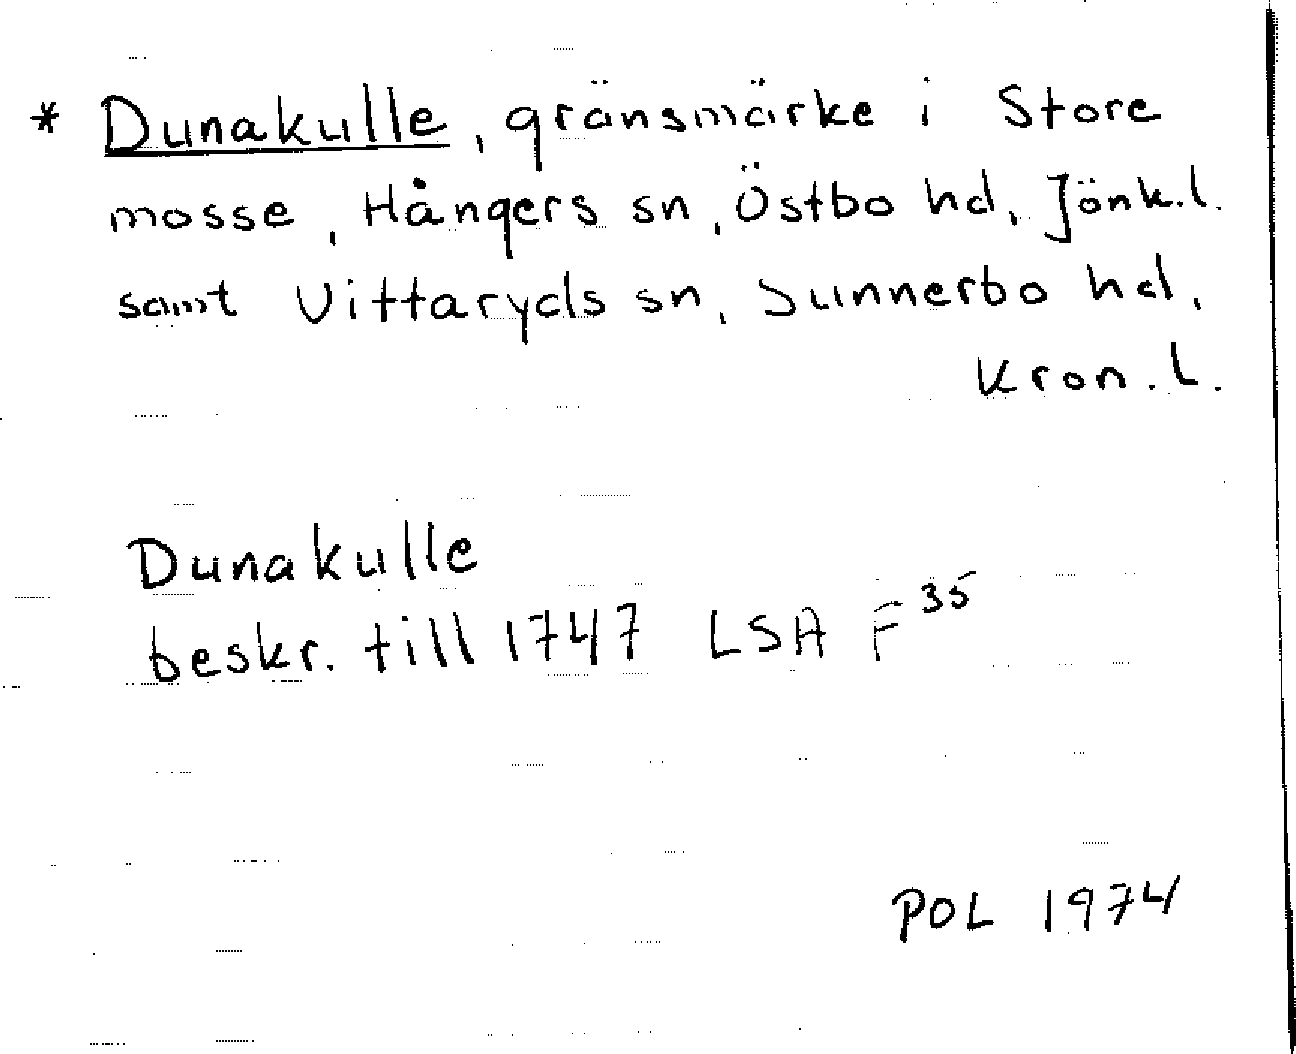 * Dunakulle, gränsmärke i Store
mosse, Hångers sn, Östbo hd, Jönk.l.
samt Vittaryds sn, Sunnerbo hd,
Kron.l.
Dunakulle
beskr. till 1747 LSA F 35
POL 1974